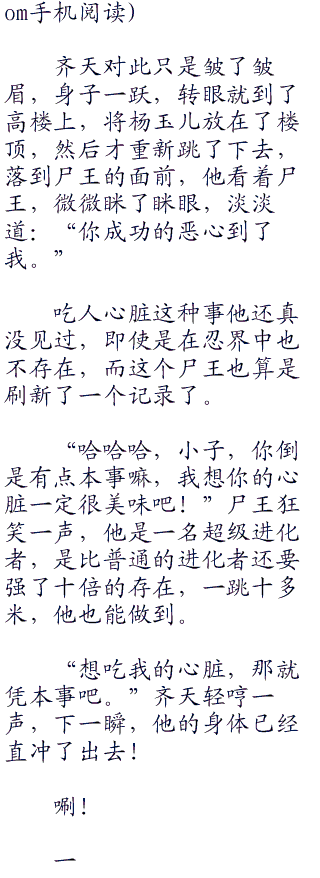 om手机阅读)
齐天对此只是皱了皱
眉，身子一跃，转眼就到了
高楼上，将杨玉儿放在了楼
顶，然后才重新跳了下去，
落到尸王的面前，他看着尸
王，微微眯了眯眼，淡淡
道：“你成功的恶心到了
我。”
吃人心脏这种事他还真
没见过，即使是在忍界中也
不存在，而这个尸王也算是
刷新了一个记录了。
“哈哈哈，小子，你倒
是有点本事嘛，我想你的心
脏一定很美味吧！”尸王狂
笑一声，他是一名超级进化
者，是比普通的进化者还要
强了十倍的存在，一跳十多
米，他也能做到。
“想吃我的心脏，那就
凭本事吧。”齐天轻哼一
声，下一瞬，他的身体已经
直冲了出去！
唰！
一